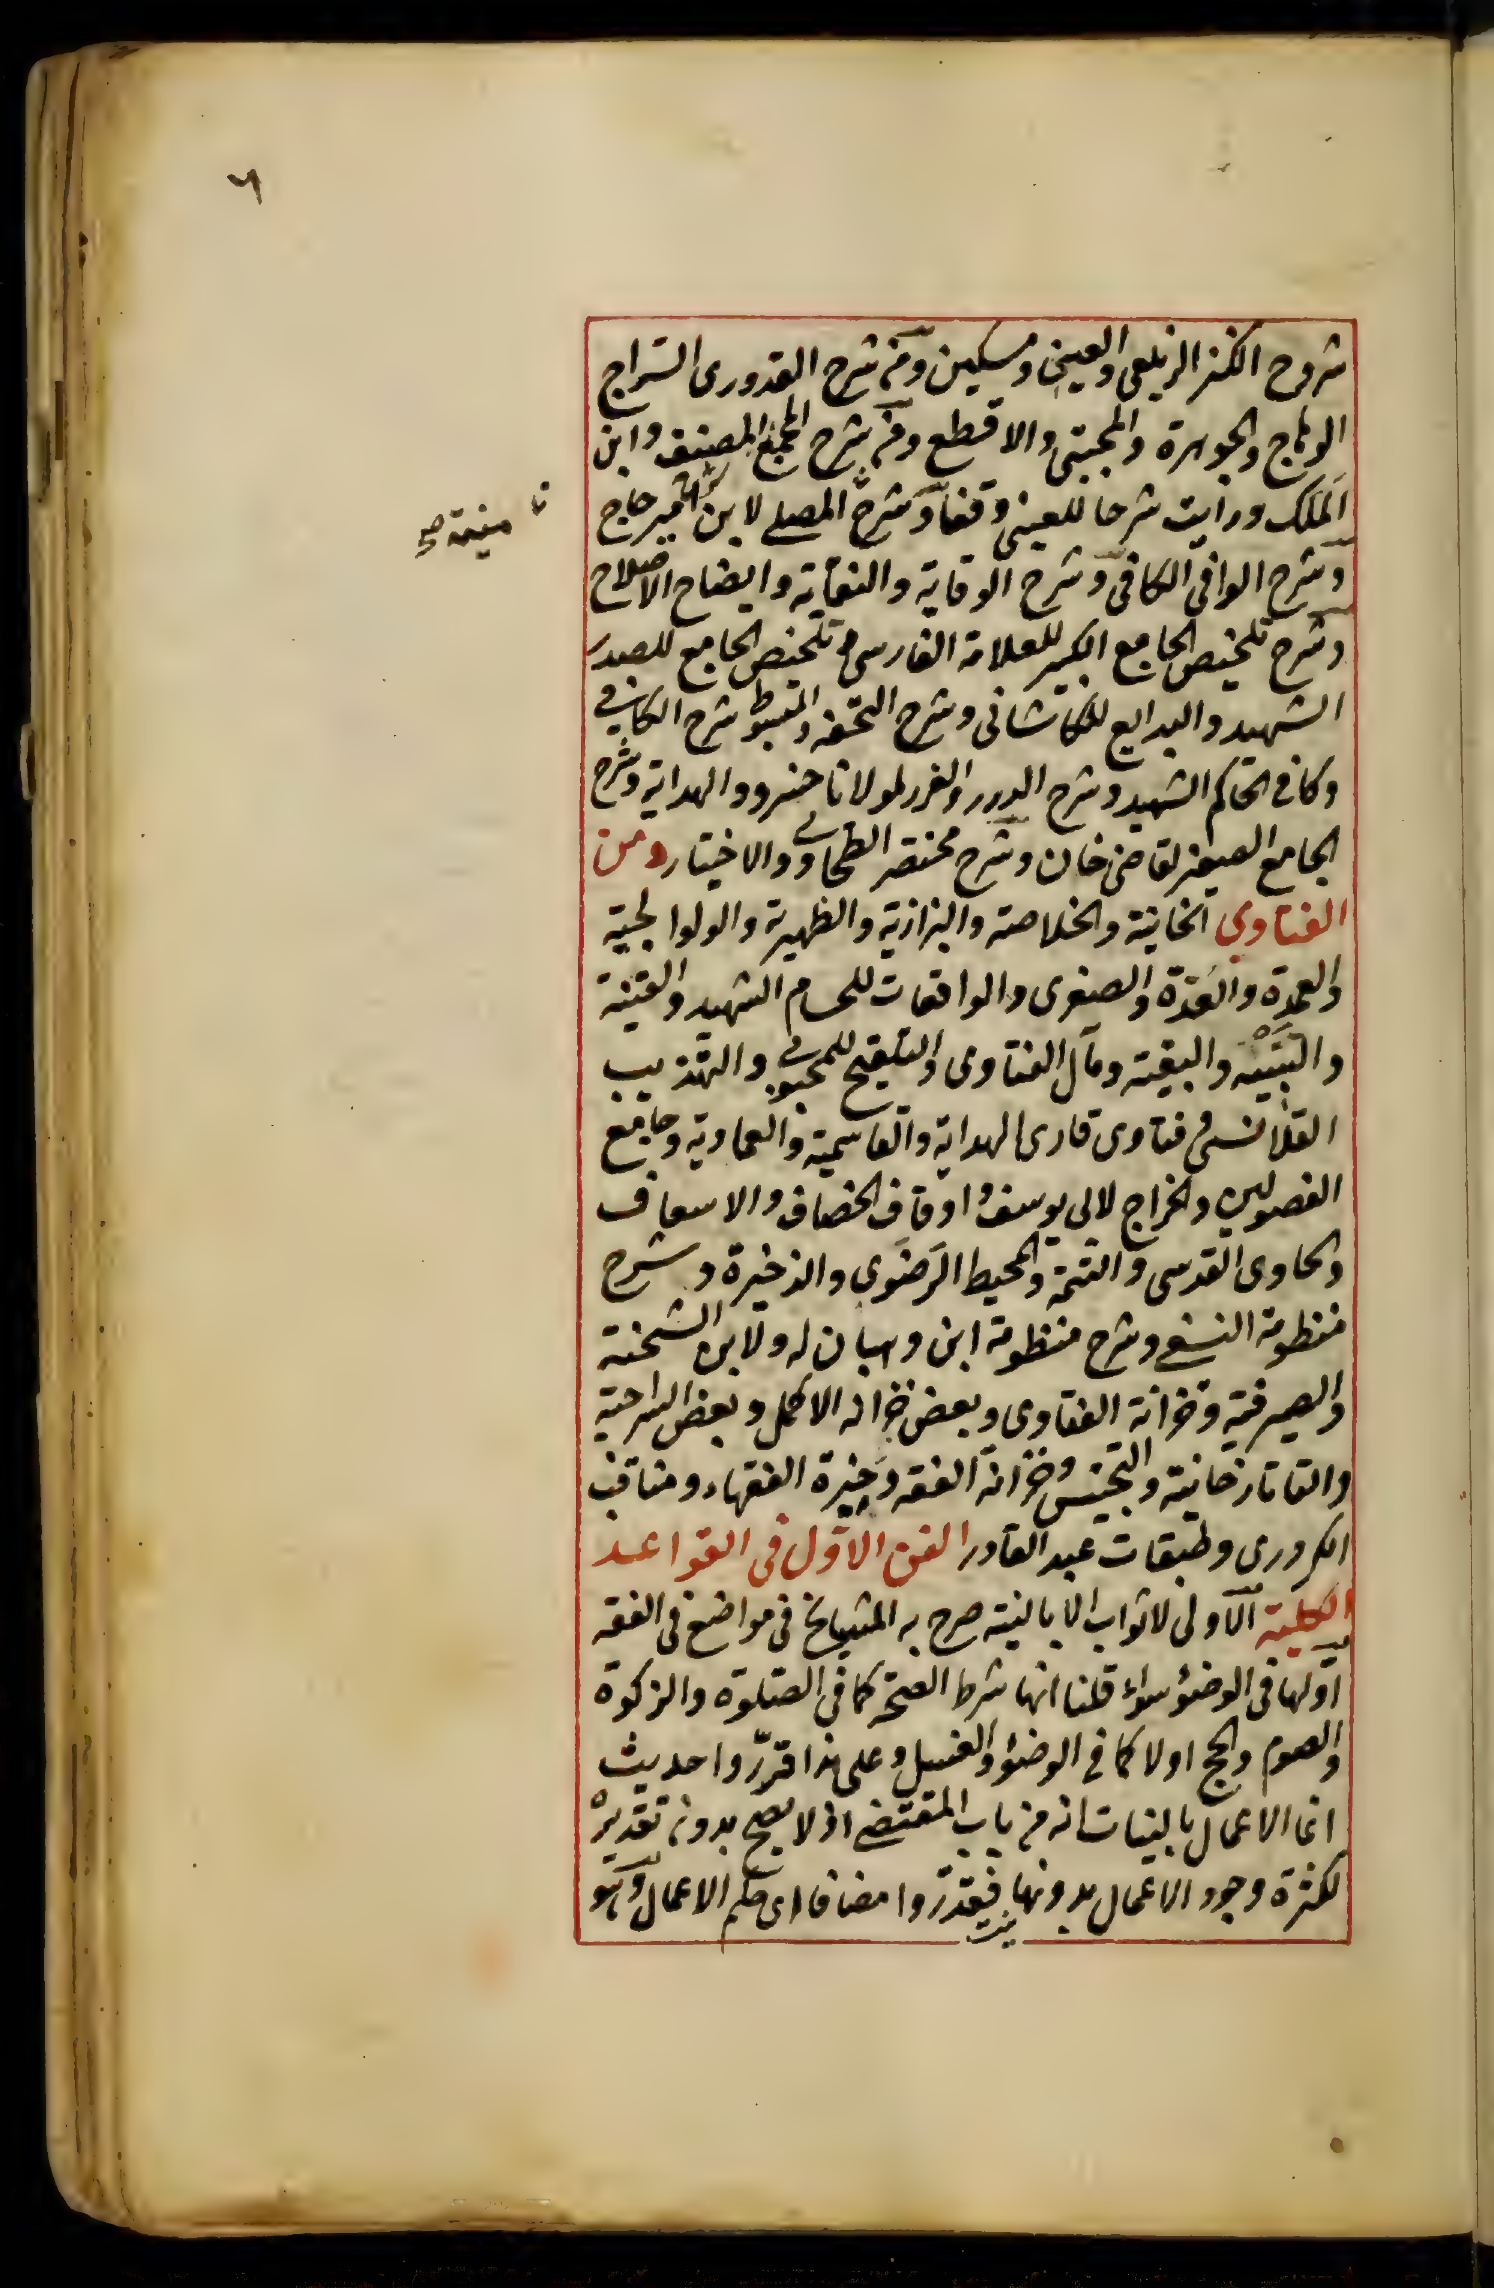 ٦
شروح الكنز الزيلعى والعينى ومسكين ومن شرح القدورى السراج
الوهاج والجوهرة والمجتبى والاقطع ومن شرح المجمع المصنف وابن
الملك ورايت شرحا للعينى وقفا وشرح المصلى لابن امير حاج
منية صح
وشرح الوافى الكافى وشرح الوقاية والنقاية وايضاح الاصلاح
وشرح تلخيص الجامع الكبير للعلامة الفارسى و تلخيص الجامع للصدر
الشهيد والبدايع للكاشانى وشرح التحفه والمبسوط شرح الكافى
وكافى الحاكم الشهيد وشرح الدرر والغرر لمولانا خسرو والهداية وشرح
الجامع الصغير لقاضى خان وشرح مختصر الطحاوى والاختيار ومن
الفتاوى الخانية والخلاصة والبزازية والظهيرية والولوالجية
والعمدة والعدة والصغرى والواقعات للحسام الشهيد والقنية
والبغية ومآل الفتاوى والتلقيح للمحبوبى والتهذيب
القلانسى و فتاوى قارى الهداية والقاسمية والعمادية وجامع
الفصولين والخراج لابى يوسف و اوقاف الخصاف والاسعاف
والحاوى القدسى والتتمة والمحيط الرضوى والذخيرة وشرح
منظومة النسفى وشرح منظومة ابن وهبان له ولابن الشحنة
والصيرفية وخزانة الفتاوى وبعض خزانه الاكمل وبعض السراجية
والتاتارخانية والتجنيس وخزانة الفقه وحيرة الفقهاء ومناقب
الكردرى وطبقات عبد القادر الفن الاول فى القواعد
الكلية الاولى لا ثواب الا بالنية صرح به المشيايخ فى مواضع فى الفقه
اولها فى الوضؤ سواء قلنا انها شرط الصحة كما فى الصلوة والزكوة
والصوم والحج اولا كما فى الوضؤ والغسل وعلى هذا قرروا حديث
انما الاعمال بالنيات انه من باب المقتضى اذ لا يصح بدونه تقدير
لكثرة وجود الاعمال بدونها فيقدروا مضافا اى حكم الاعمال وهو